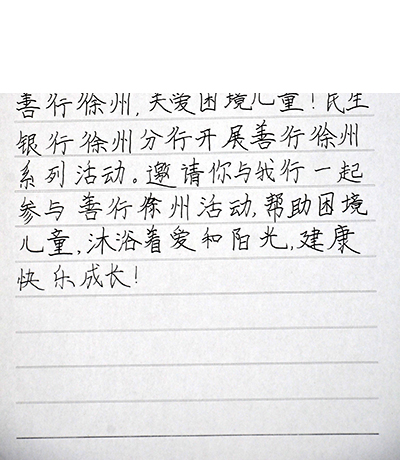 善行徐州,关爱困境儿童!民生
银行徐州分行开展善行徐州
系列活动。邀请你与我行一起
参与善行徐州活动,帮助困境
儿童,沐浴着爱和阳光,建康
快乐成长!